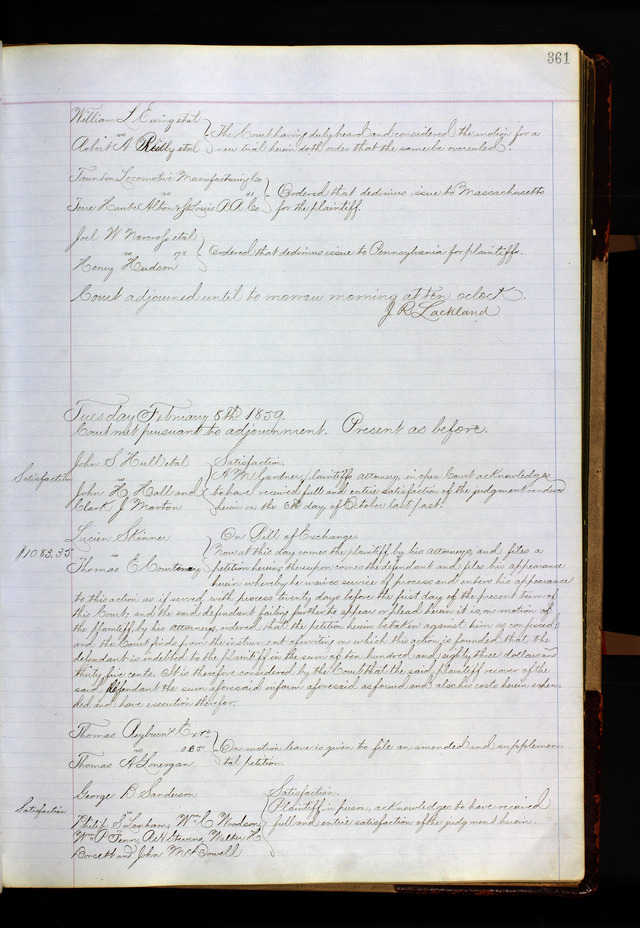 361
William L Ewing et al
vs
Robert A Reilly et al
The Court having duly heard and considered the motion for a
new trial herein doth order that the same be overruled.
Taunton Locomotive Manufacturing Co
vs
Terre Haute Alton & St Louis R R Co
Ordered that dedimus issue to Massachusetts
for the plaintiff.
Joel W Norcross et al
vs
Henry Hudson
Ordered that dedimus issue to Pennsylvania for plaintiffs.
Court adjourned until to morrow morning at ten oclock.
J R Lackland
Tuesday February 8th 1859.
Court met pursuant to adjournment. Present as before.
Satisfaction
John S Hull et al
vs
John H Hall and
Clark J Morton
Satisfaction.
A M Gardner, plaintiffs attorney, in open Court acknowledges
to have received full and entire satisfaction of the judgment rendered
herein on the day of October last past.
$1083.35
Lucien Skinner
vs
Thomas E Courtenay
On Bill of Exchange.
Now at this day comes the plaintiff by his attorney, and files a
petition herein, thereupon comes the defendant and files his appearance
herein whereby he waives service of process and enters his appearance
to this action as if served with process twenty days before the first day of the present term of
this Court, and the said defendant failing further to appear or plead herein it is, on motion of
the plaintiff, by his attorney, ordered that the petition herein be taken against him as confessed
and the Court finds from the instrument of writing on which this action is founded that the
defendant is indebted to the plaintiff in the sum of ten hundred and eighty three dollars and
thirty five cents. It is therefore considered by the Court that the said plaintiff recover of the
said defendant the sum aforesaid in form aforesaid as found and also his costs herein expen
ded and have execution therefor.
Thomas Reyburn
vs
Thomas A Lonergan
On motion leave is given to file an amended and supplemen
tal petition.
Satisfaction
George B Sanderson
vs
Philip S Lanham, Wm C Woodson,
Wm P Fenn, A H Stevens, Walker H
Dorsett and John M McDowell
Satisfaction.
Plaintiff in person, acknowledges to have received
full and entire satisfaction of the judgment herein.